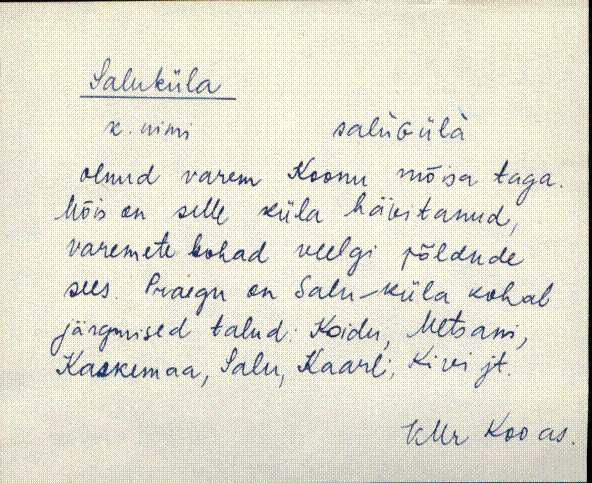 Saluküla
k. nimi salùGülà
olnud varem Koonu mõisa taga.
Mõis on selle küla hävitanud,
varemete kohad veelgi põldude
sees. Praegu on Salu-küla kohal
järgmised talud: Koidu, Metsani,
Kaskemaa, Salu, Kaarli, Kivi jt.
KMr Koo as.